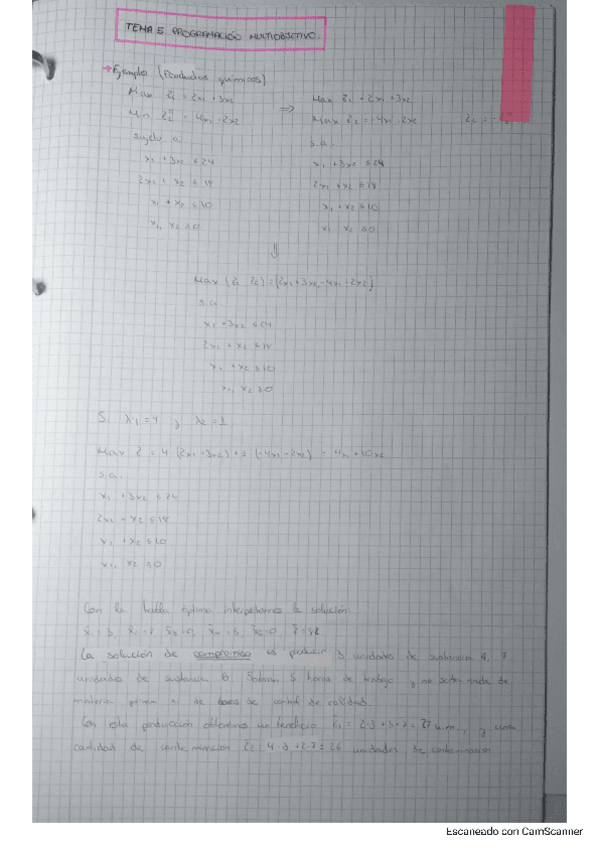 TEMA 5. PROGRAMACIÓN MULTIOBJETIVO.
→ Ejemplo (Productos químicos)
Max z₁ = 2x₁ + 3x₂ ⇒ Max z₁ = 2x₁ + 3x₂
Min z₂ = 4x₁ + 2x₂ Max z₂ = -4x₁ - 2x₂
sujeto a s.a.
x₁ + 3x₂ ≤ 24 x₁ + 3x₂ ≤ 24
2x₁ + x₂ ≤ 18 2x₁ + x₂ ≤ 18
x₁ + x₂ ≤ 10 x₁ + x₂ ≤ 10
x₁, x₂ ≥ 0 x₁, x₂ ≥ 0
⇓
Max (z₁, z₂) = (2x₁ + 3x₂, -4x₁ - 2x₂)
s.a.
x₁ + 3x₂ ≤ 24
2x₁ + x₂ ≤ 18
x₁ + x₂ ≤ 10
x₁, x₂ ≥ 0
Si λ₁ = 4 y λ₂ = 1
Max z = 4 (2x₁ + 3x₂) + 1 (-4x₁ - 2x₂) = 4x₁ + 10x₂
s.a.
x₁ + 3x₂ ≤ 24
2x₁ + x₂ ≤ 18
x₁ + x₂ ≤ 10
x₁, x₂ ≥ 0
Con la tabla óptima interpretamos la solución:
La solución de compromiso es producir 3 unidades de sustancia A, 7
unidades de sustancia B. Sobran 5 horas de trabajo y no sobra nada de
materia prima ni de horas de control de calidad.
Con esta producción obtenemos un beneficio z₁ = 2·3 + 3·7 = 27 u.m., y una
cantidad de contaminación z₂ = 4·3 + 2·7 = 26 unidades de contaminación
Escaneado con CamScanner